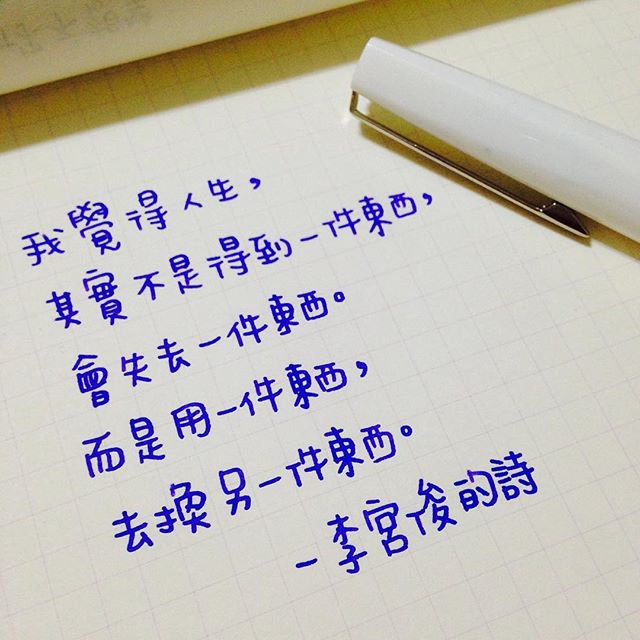 我覺得人生，
其實不是得到一件東西，
會失去一件東西。
而是用一件東西，
去換另一件東西。
-李宮俊的詩